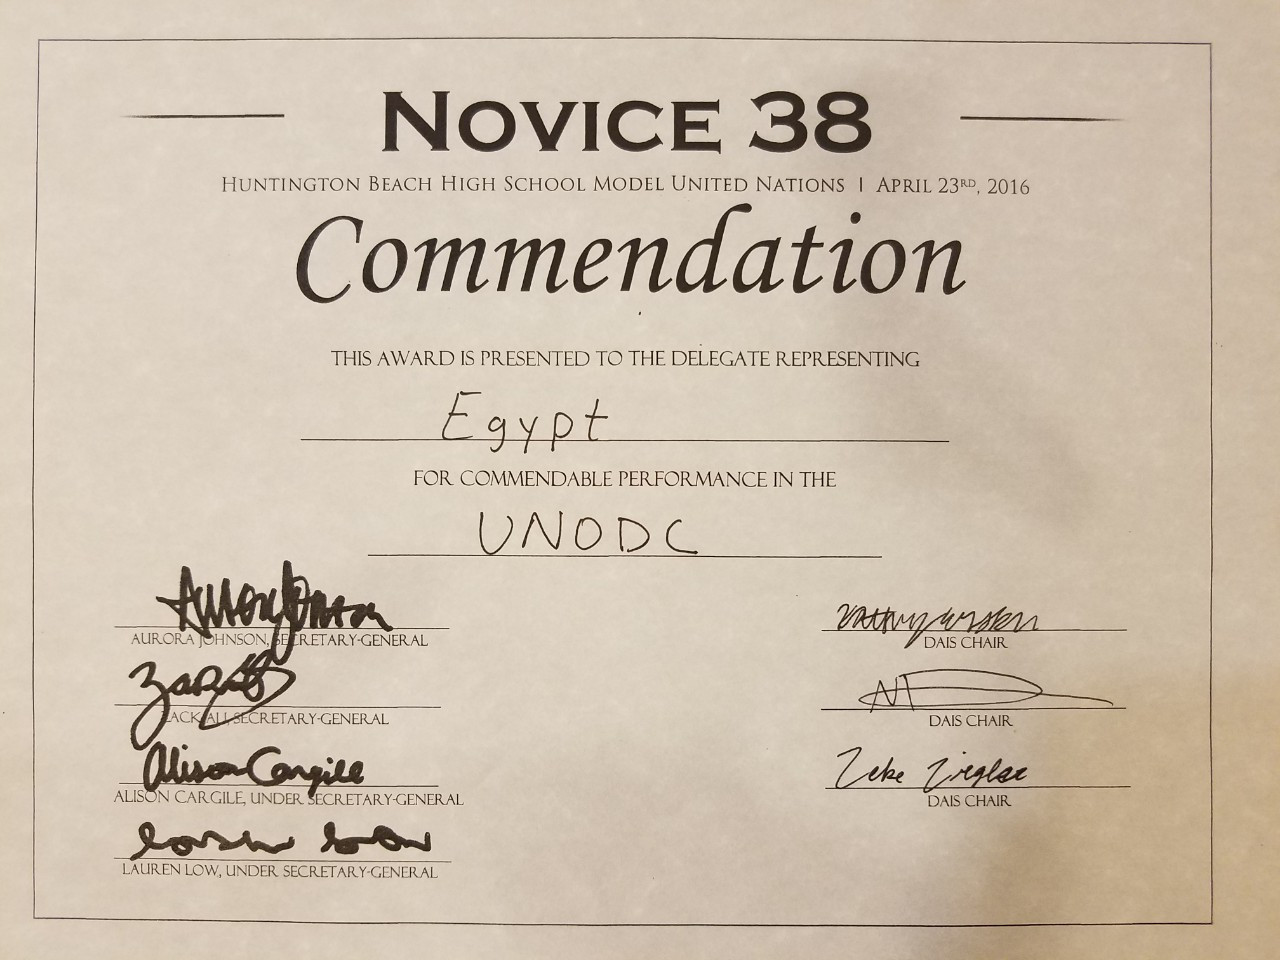 NOVICE 38
HUNTINGTON BEACH HIGH SCHOOL MODEL UNITED NATIONS | APRIL 23RD, 2016
Commendation
THIS AWARD IS PRESENTED TO THE DELEGATE REPRESENTING
Egypt
FOR COMMENDABLE PERFORMANCE IN THE
UNODC
Aurora Johnson
AURORA JOHNSON, SECRETARY-GENERAL
ZACK ALI, SECRETARY-GENERAL
Alison Cargile
ALISON CARGILE, UNDER SECRETARY-GENERAL
Lauren Low
LAUREN LOW, UNDER SECRETARY-GENERAL
DAIS CHAIR
DAIS CHAIR
Zeke Ziegler
DAIS CHAIR